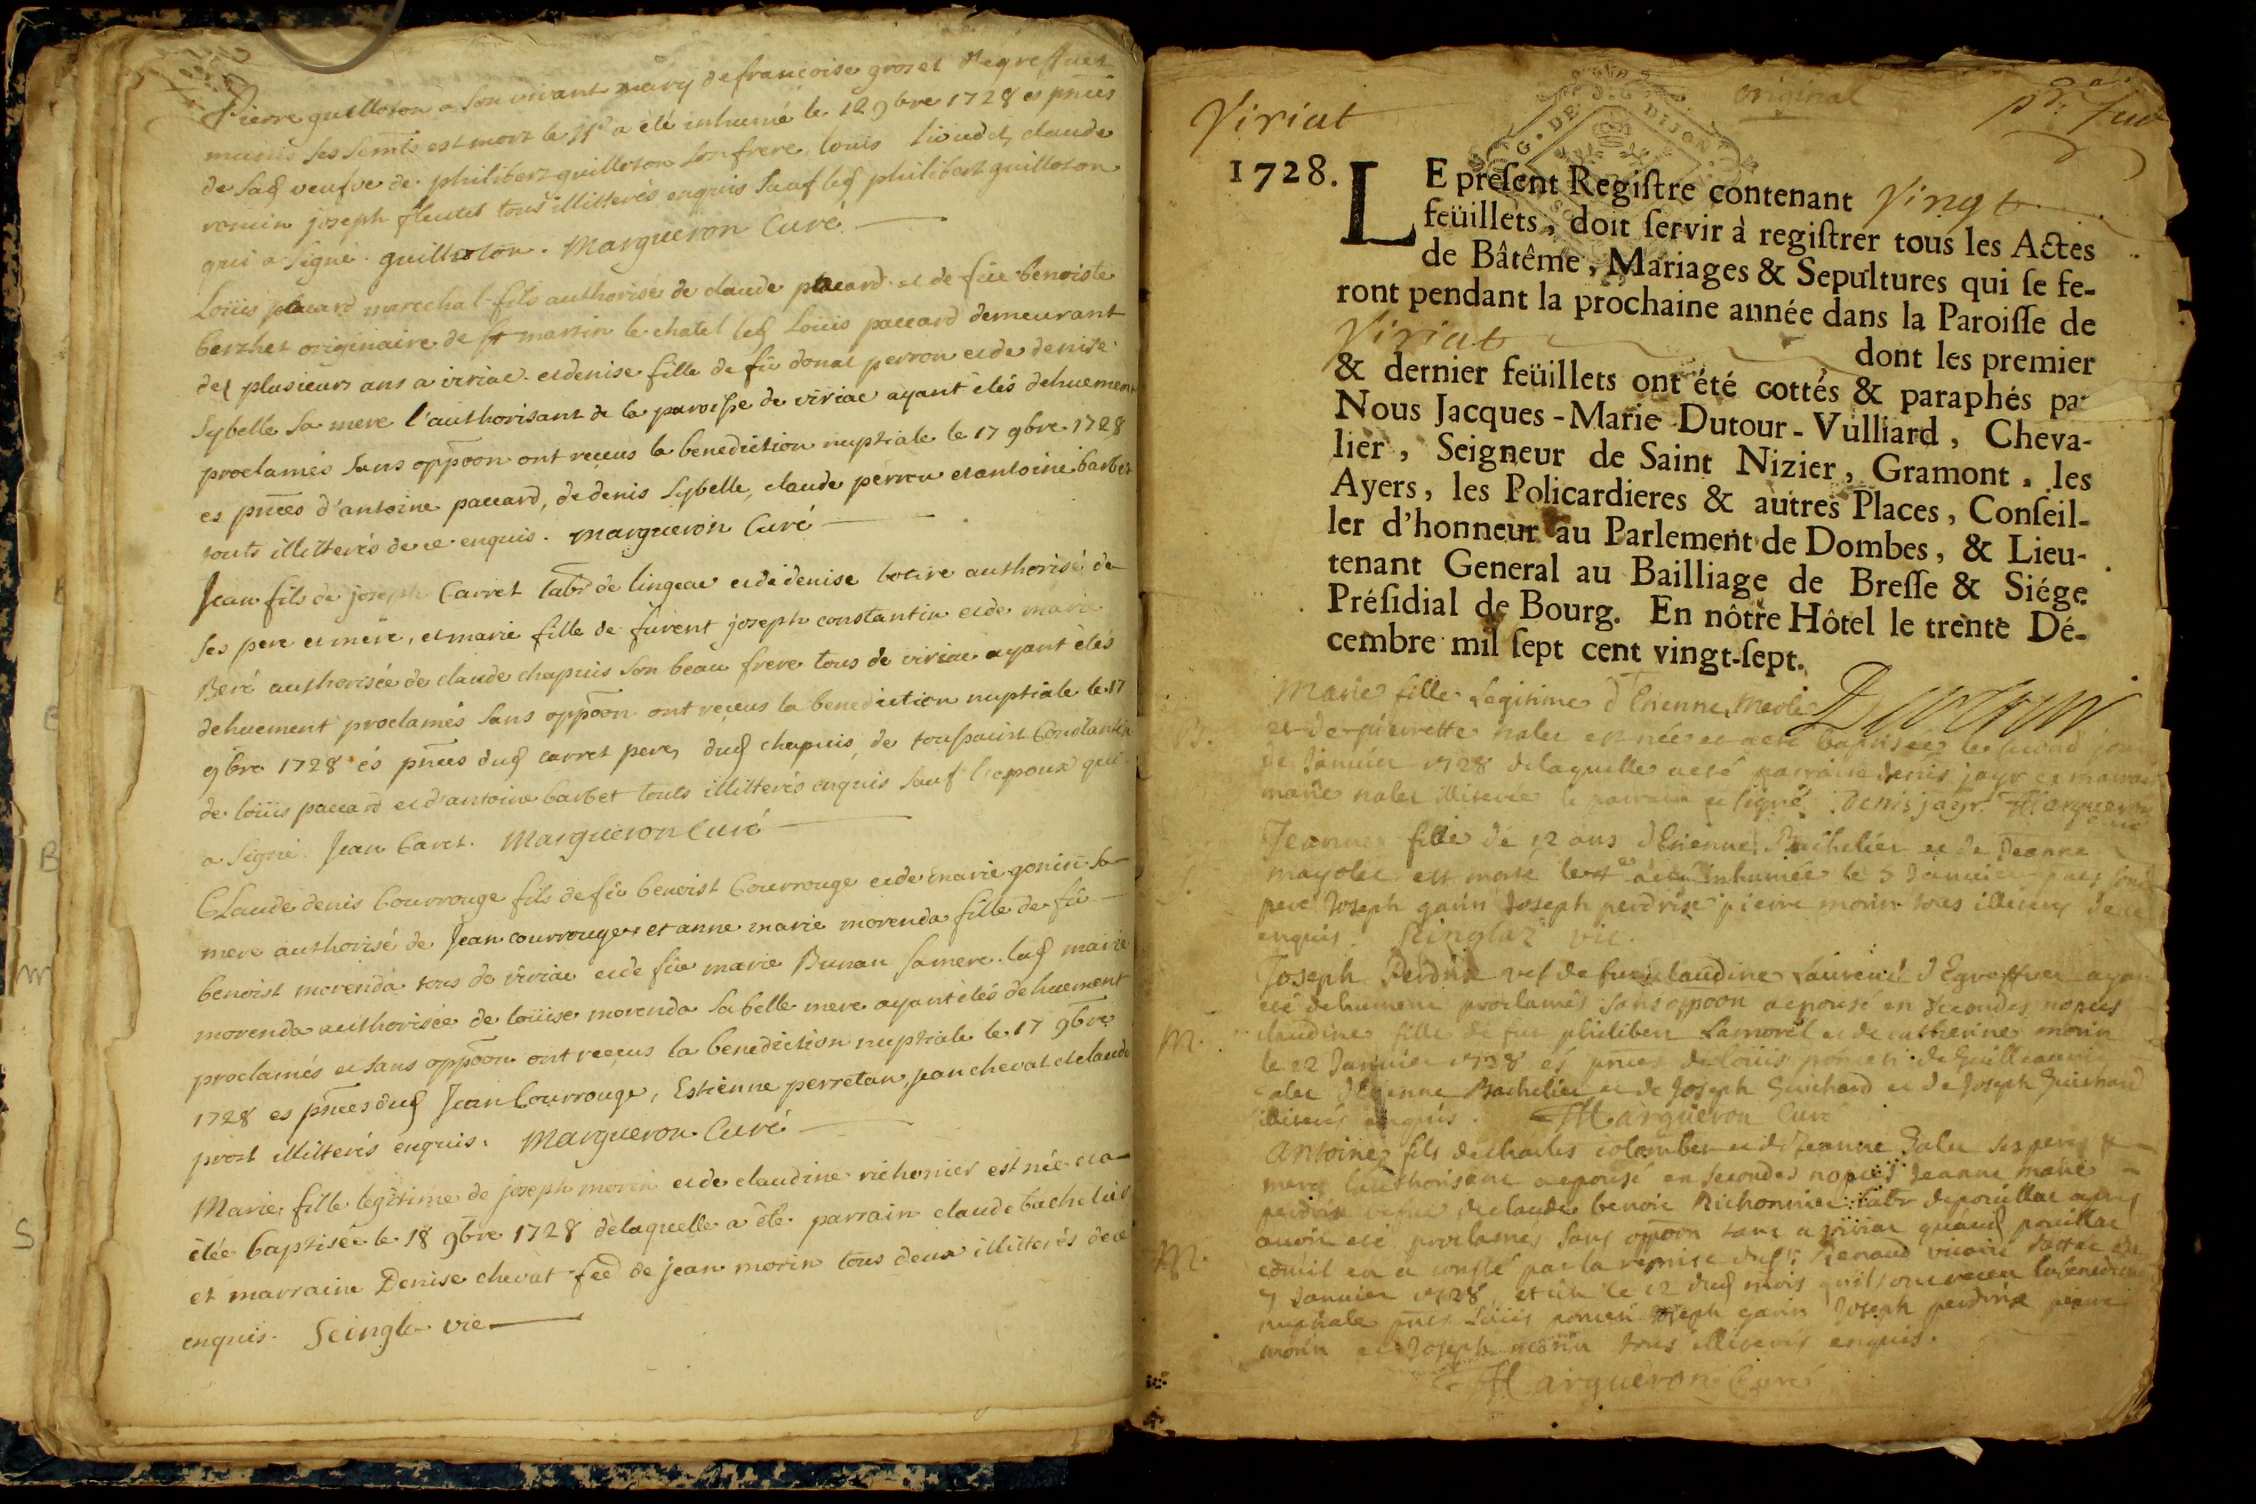 Pierre guilloton a son vivant mary de françoise grozet d'egreffues
munis ses est mort le 11e a été inhumé le 12 9bre 1728 es pnces
de lad veufve de philibert guilloton son frere, loüis claude
romin joseph fleutet tous illitterés enquis sauf led philibert guilloton
qui a signé. guilloton. Margueron Curé
Loüis paccard marechal fils authorisé de claude paccard et de füe benoiste
berthet originaire de st martin le chatel led Loüis paccard demeurant
des plusieurs ans a viriac et denise fille de fü donat perron et de denise
Sybelle sa mere l'authorisant de la paroisse de viriac ayant étés dehuement
proclamés sans oppõon ont reçeus la benediction nuptiale le 17 9bre 1728
es pnces d'antoine paccard, de denis Sybelle, claude perron et antoine barbet
touts illitterés de ce enquis. Margueron Curé
Jean fils de joseph Carret labr de lingeac et de denise botire authorisé de
ses pere et mere, et marie fille de furent joseph constantin et de marie
Beré authorisée de claude chapuis son beau frere tous de viriac ayant étés
dehuement proclamés sans oppõon ont reçeus la benediction nuptiale le 17
9bre 1728 és pnces dud carret pere, dud chapuis, de toussaint Constantin
de loüis paccard et d'antoine barbet touts illitterés enquis sauf l'epoux qui
a signé. Jean Caret. Margueron Curé
CLaude denis Courrouge fils de fü benoist Courrouge et de marie gonin sa
mere authorisé de Jean courrouge et anne marie morenda fille de fü
benoist morenda tous de viriac et de füe marie Bunau sa mere. lad marie
morenda authorisée de loüise morenda sa belle mere ayant étés dehuement
proclamés et sans oppõon ont reçeus la benediction nuptiale le 17 9bre
1728 es pnces dud Jean Courrouge, Estienne perretan, jean chevat et claude
prost illitterés enquis. Margueron Curé
Marie fille legitime de joseph morin et de claudine richonier est née et a
étée baptisée le 18 9bre 1728 de laquelle a été parrain claude bachelier
et marraine Denise chevat fee de jean morin tous deux illitterés de ce
enquis. Seingle vie
original
Viriat
1728. LE present Registre contenant Vingt
feüillets, doit servir à registrer tous les Actes
de Bâtême, Mariages & Sepultures qui se fe-
ront pendant la prochaine année dans la Paroisse de
Viriat dont les premier
& dernier feüillets ont été cottés & paraphés par
Nous Jacques-Marie Dutour-Vulliard, Cheva-
lier, Seigneur de Saint Nizier, Gramont, les
Ayers, les Policardieres & autres Places, Conseil-
ler d'honneur au Parlement de Dombes, & Lieu-
tenant General au Bailliage de Bresse & Siége
Présidial de Bourg. En nôtre Hôtel le trente Dé-
cembre mil sept cent vingt-sept.
Dutour
Marie fille Legitime d'Etienne Merle
B. et de pierrette nalet est née et a eté baptisée le second jour
de Janvier 1728 de laquelle a eté parrain denis jayr et marraine
marie nalet illiterée le parrain a signé. Denis jayr. Margueron
Jeanne fille de 12 ans d'Etienne Bachelier et de Jeanne
S. mayolet est morte le et a eté inhumée le 5 Janvier son
pere Joseph garin Joseph perdrise pierre morin tous illiterés de ce
enquis. Seinglaz vic.
Joseph Perdrix vef de fue claudine Laurent d'Egreffues ayant
eté dehument proclamés sans oppoon a epousé en secondes nopces
M. claudine fille de fut philibert Lamorel et de catherine morin
le 12 Janvier 1728 és pnces de loüis poncet de Guilleaume
Calet d'Etienne Bachelier et de Joseph Guichard et de Joseph Guichard
illiterés enquis. Margueron Curé
Antoine fils de charles colomber et de Jeanne Galet ses pere et
mere l'authorisant a epousé en secondes nopces Jeanne marie
perdrix vefue de claude benoit Richonnier labr de poüillat apres
M. avoir eté proclamés sans oppoon tant a viriac qu'aud pouillac
comme il en a consté par la remise du sr Renaud vicaire
7 Janvier 1728 et le 12 dud mois qu'ils ont receu la benediction
nuptiale pnces Loüis poncet Joseph garin Joseph perdrix pierre
morin et Joseph morin tous illiterés enquis.
Margueron Curé